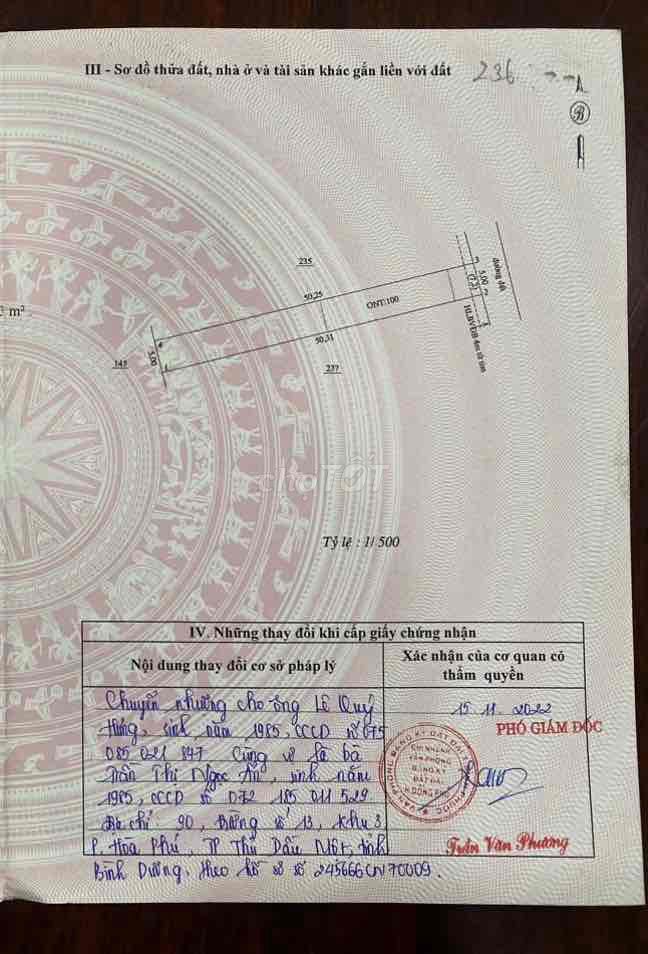 III - Sơ đồ thửa đất, nhà ở và tài sản khác gắn liền với đất 236
A
B
m²
235
50,25
ONT:100
50,31
237
145
5.00
5.00
đường đất
HLBVĐB
chợTỐT
Tỷ lệ : 1/ 500
IV. Những thay đổi khi cấp giấy chứng nhận
Nội dung thay đổi cơ sở pháp lý
Xác nhận của cơ quan có thẩm quyền
Chuyển nhượng cho ông Lê Quý
Hưng, sinh năm 1985, CCCD số 075
085 021 847 Cùng vợ là bà
Trần Thị Ngọc Ẩn, sinh năm
1985, CCCD số 072 185 011 529
Địa chỉ 90, Đường số 13, Khu 3
P. Hòa Phú, TP Thủ Dầu Một, tỉnh
Bình Dương. Theo hồ sơ số 245666CN70009.
15 11 2022
PHÓ GIÁM ĐỐC
CHI NHÁNH
VĂN PHÒNG
ĐĂNG KÝ
ĐẤT ĐAI
Trần Văn Phương